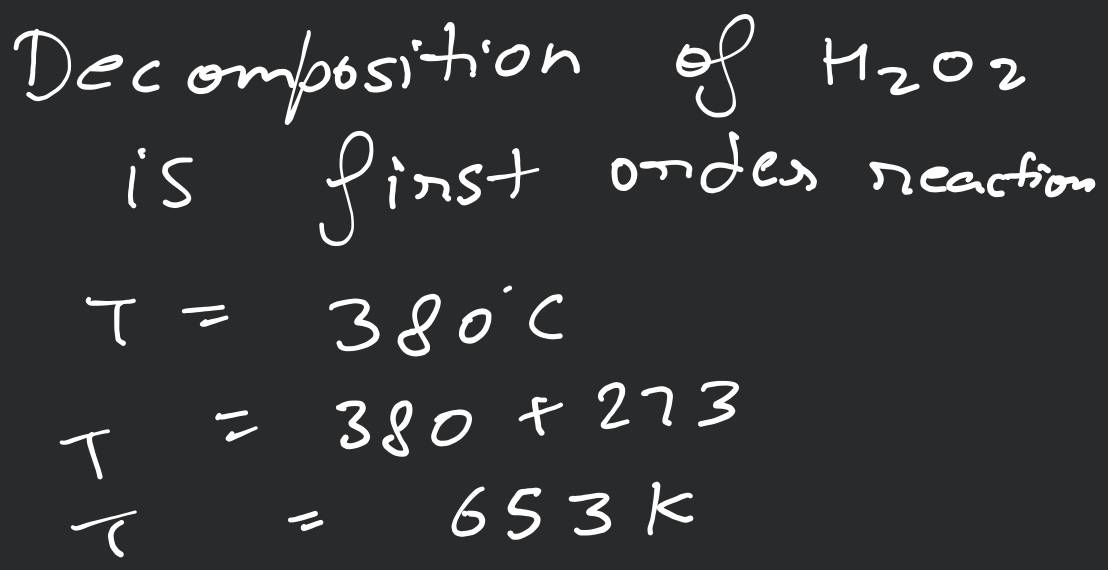 Decomposition of H₂O₂
is first order reaction
T = 380°C
T = 380 + 273
T = 653 K